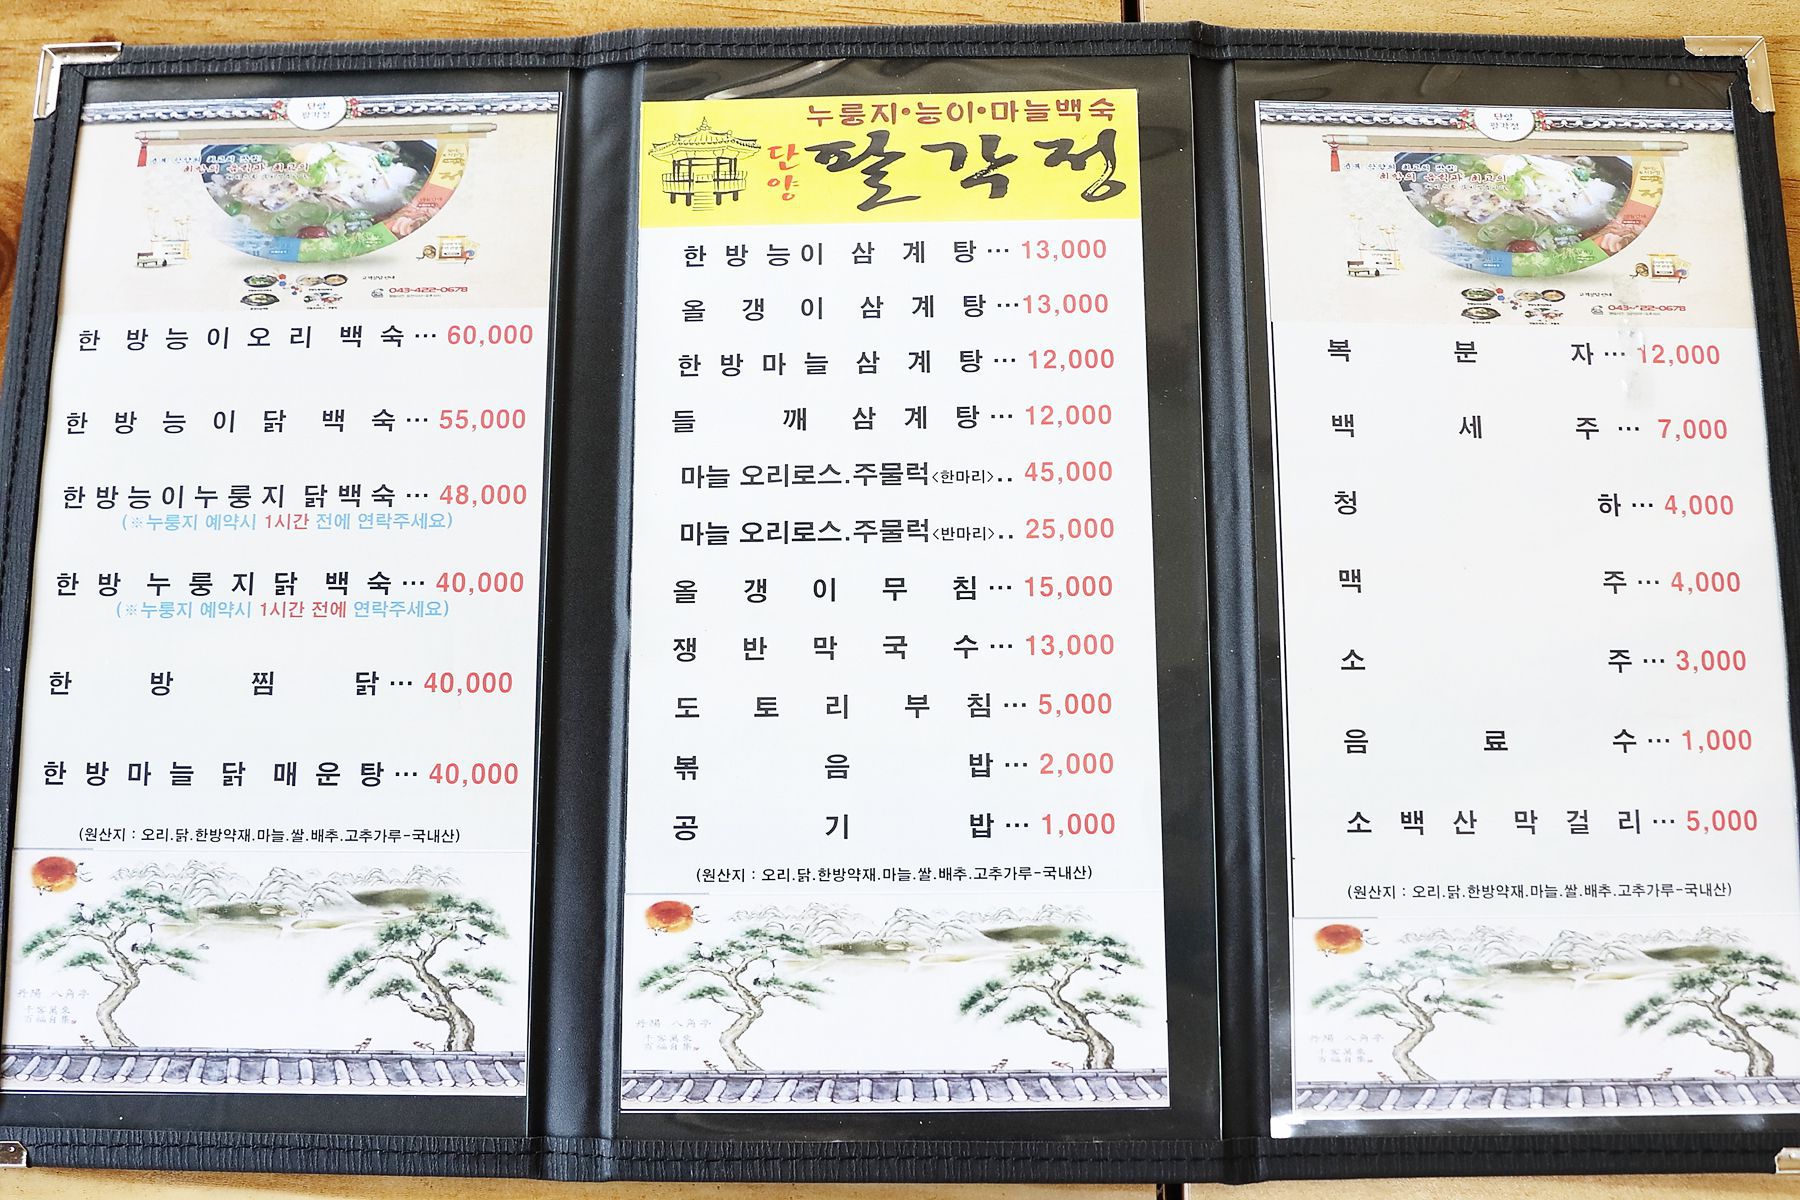 단양
팔각정
043-422-0678
한방능이오리 백숙… 60,000
한방능이닭 백숙… 55,000
한방능이누룽지 닭백숙… 48,000
(※누룽지 예약시 1시간 전에 연락주세요)
한방누룽지닭 백숙… 40,000
(※누룽지 예약시 1시간 전에 연락주세요)
한방찜닭… 40,000
한방마늘닭 매운탕… 40,000
(원산지 : 오리.닭.한방약재.마늘.쌀.배추.고추가루-국내산)
丹陽 八角亭
누룽지•능이•마늘백숙
단양 팔각정
한방능이 삼계탕… 13,000
올갱이삼계탕…13,000
한방마늘삼계탕… 12,000
들깨삼계탕… 12,000
마늘 오리로스.주물럭<한마리>.. 45,000
마늘 오리로스.주물럭<반마리>.. 25,000
올갱이무침… 15,000
쟁반막국수… 13,000
도토리부침… 5,000
볶음밥… 2,000
공기밥… 1,000
(원산지 : 오리.닭.한방약재.마늘.쌀.배추.고추가루-국내산)
丹陽 八角亭
단양
팔각정
043-422-0678
복분자… 12,000
백세주… 7,000
청하… 4,000
맥주… 4,000
소주… 3,000
음료수… 1,000
소백산막걸리… 5,000
(원산지 : 오리.닭.한방약재.마늘.쌀.배추.고추가루-국내산)
丹陽 八角亭